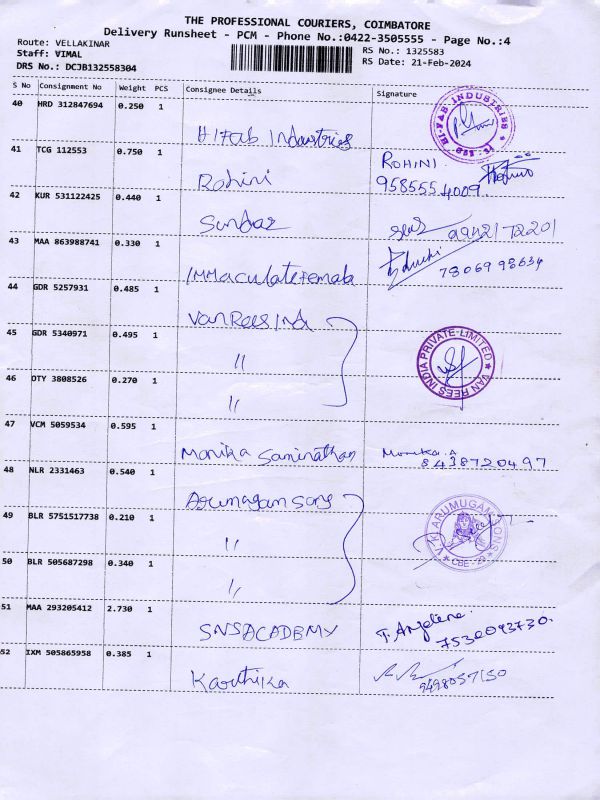 THE PROFESSIONAL COURIERS, COIMBATORE
Delivery Runsheet - PCM - Phone No.:0422-3505555 - Page No.:4
Route: VELLAKINAR
Staff: VIMAL
DRS No.: DCJB132558304
RS No.: 1325583
RS Date: 21-Feb-2024
S No Consignment No Weight PCS Consignee Details Signature
40 HRD 312847694 0.250 1
Hifab Industries
HI-FAB INDUSTRIES
41 TCG 112553 0.750 1
Rohini ROHINI
9585554009
42 KUR 531122425 0.440 1
Sundar 9942172201
43 MAA 863988741 0.330 1
IMMaculateFemala 7806998634
44 GDR 5257931 0.485 1
Van Rees Ind
45 GDR 5340971 0.495 1
"
VAN REES INDIA PRIVATE-LIMITED
46 OTY 3808526 0.270 1
"
47 VCM 5059534 0.595 1
Monika Saminathan Monika.A
8438720497
48 NLR 2331463 0.540 1
Arumugam Sons
49 BLR 5751517738 0.210 1
"
V.K. ARUMUGAM SONS
50 BLR 505687298 0.340 1
"
51 MAA 293205412 2.730 1
SNSACADEMY T. Anjelena
7530093730.
52 IXM 505865958 0.385 1
Karthika 9498057150